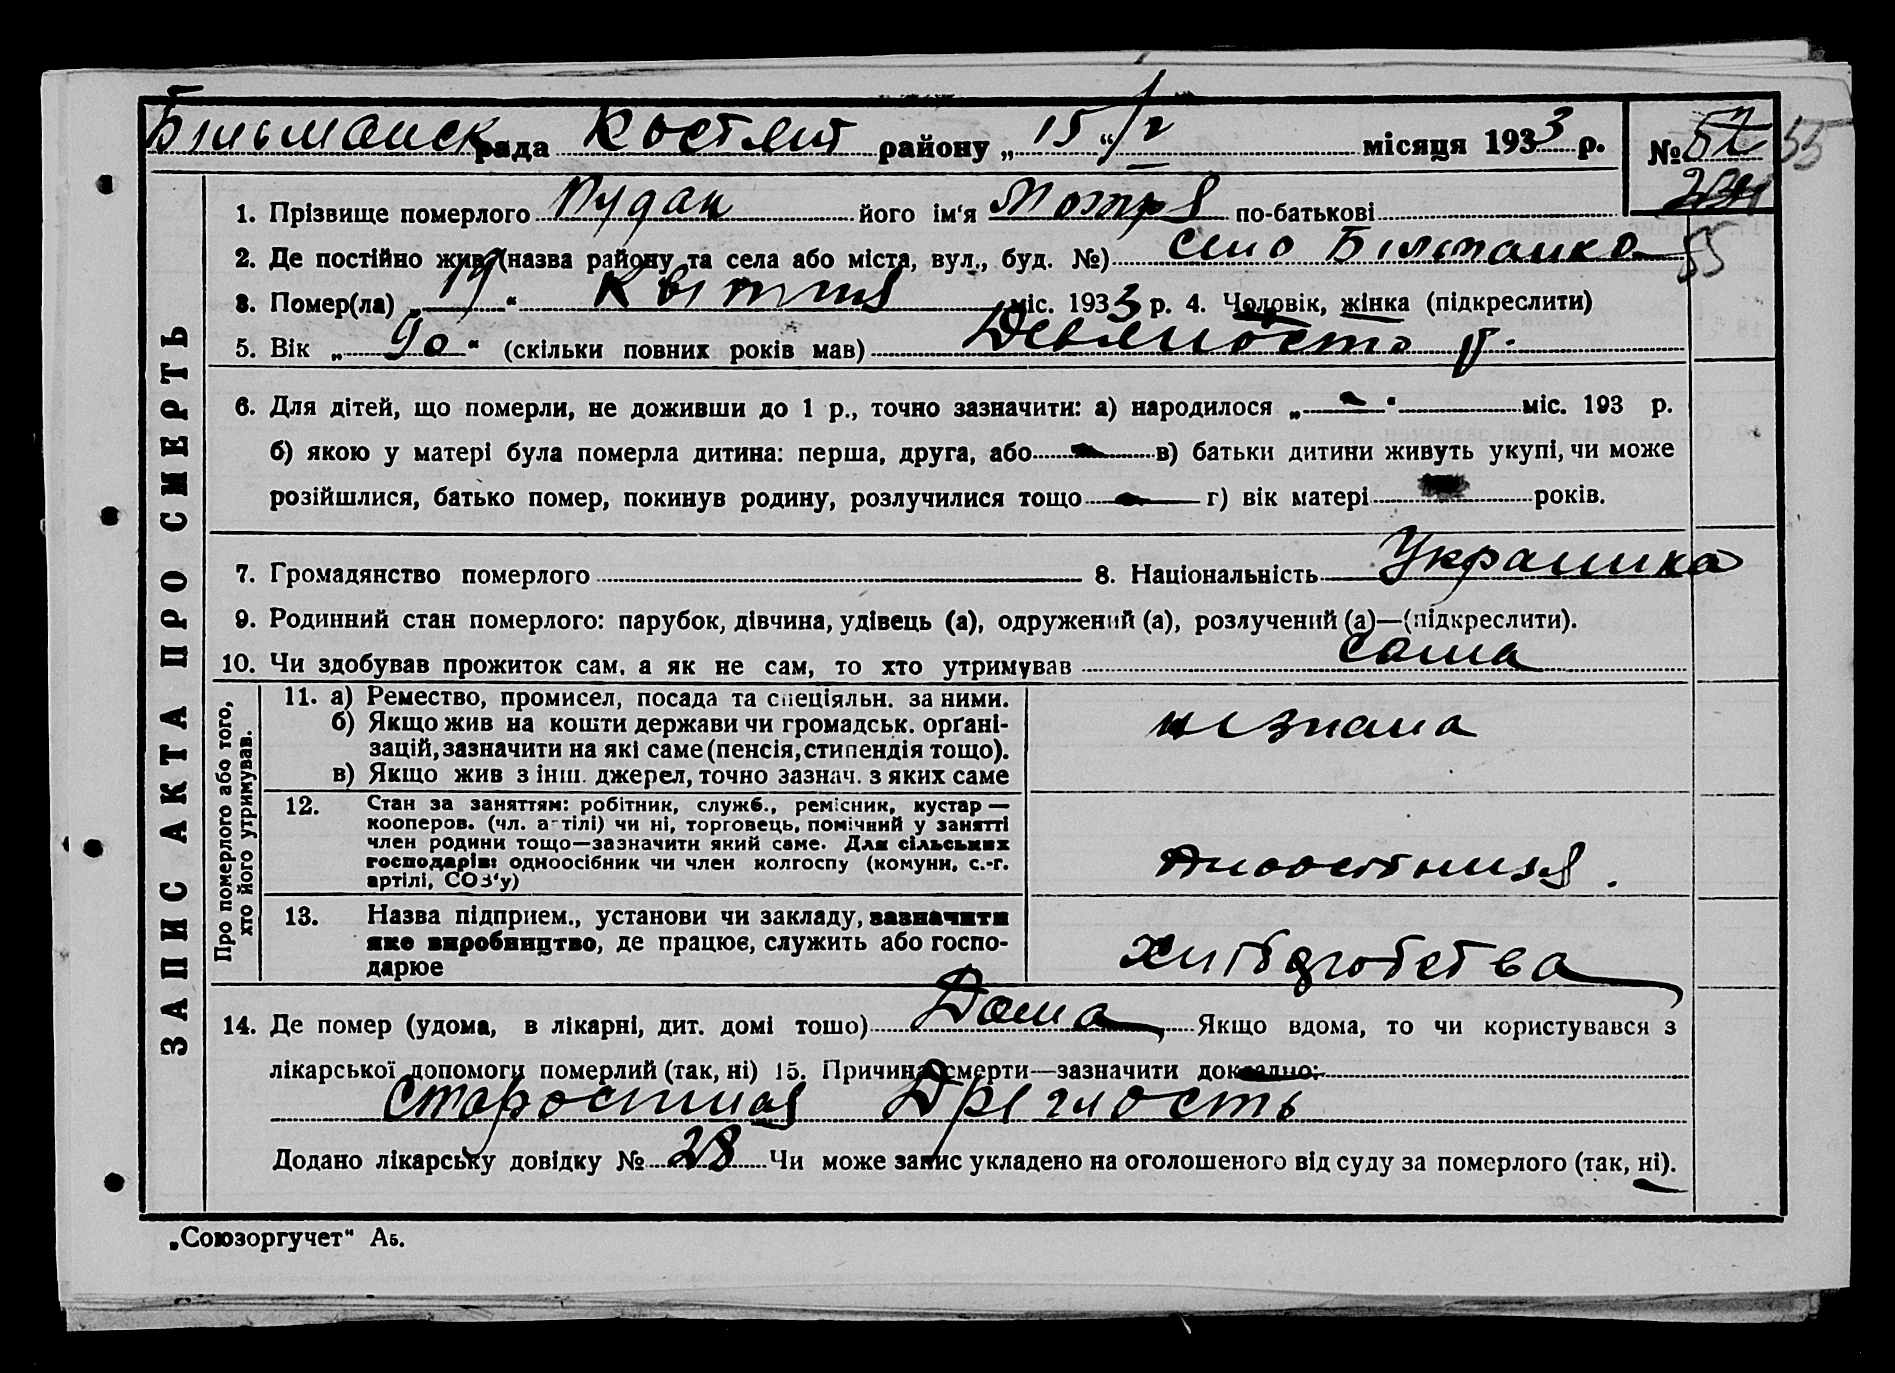 Більманськ рада Костянт району „ 15 “ /V місяця 1933 р. № 52 55
1. Прізвище померлого Пудак його ім'я Мотря по-батькові
2. Де постійно жив (назва району та села або міста, вул., буд. №) село Більманка 55
3. Помер(ла) „ 19 “ Квітня міс. 1933 р. 4. Чоловік, жінка (підкреслити)
5. Вік „ 90 “ (скільки повних років мав) Девяносто р.
6. Для дітей, що померли, не доживши до 1 р., точно зазначити: а) народилося „ “ міс. 193 р.
б) якою у матері була померла дитина: перша, друга, або в) батьки дитини живуть укупі, чи може
розійшлися, батько помер, покинув родину, розлучилися тощо г) вік матері років.
7. Громадянство померлого 8. Національність Украинка
9. Родинний стан померлого: парубок, дівчина, удівець (а), одружений (а), розлучений (а)—(підкреслити).
10. Чи здобував прожиток сам, а як не сам, то хто утримував сама
11. а) Ремество, промисел, посада та спеціяльн. за ними.
б) Якщо жив на кошти держави чи громадськ. орґані-
зацій, зазначити на які саме (пенсія, стипендія тощо).
в) Якщо жив з інш. джерел, точно зазнач. з яких саме
незнала
12. Стан за заняттям: робітник, служб., ремісник, кустар —
кооперов. (чл. артілі) чи ні, торговець, помічний у занятті
член родини тощо—зазначити який саме. Для сільських
господарів: одноосібник чи член колгоспу (комуни, с.-г.
артілі, СОЗ'у)
13. Назва підприєм., установи чи закладу, зазначити
яке виробництво, де працює, служить або госпо-
дарює
14. Де помер (удома, в лікарні, дит. домі тощо) Дома Якщо вдома, то чи користувався з
лікарської допомоги померлий (так, ні) 15. Причина смерти—зазначити докладно:
Старостная Дряхлость
Додано лікарську довідку № 28 Чи може запис укладено на оголошеного від суду за померлого (так, ні).
ЗАПИС АКТА ПРО СМЕРТЬ
Про померлого або того,
хто його утримував.
„Союзоргучет“ А5.